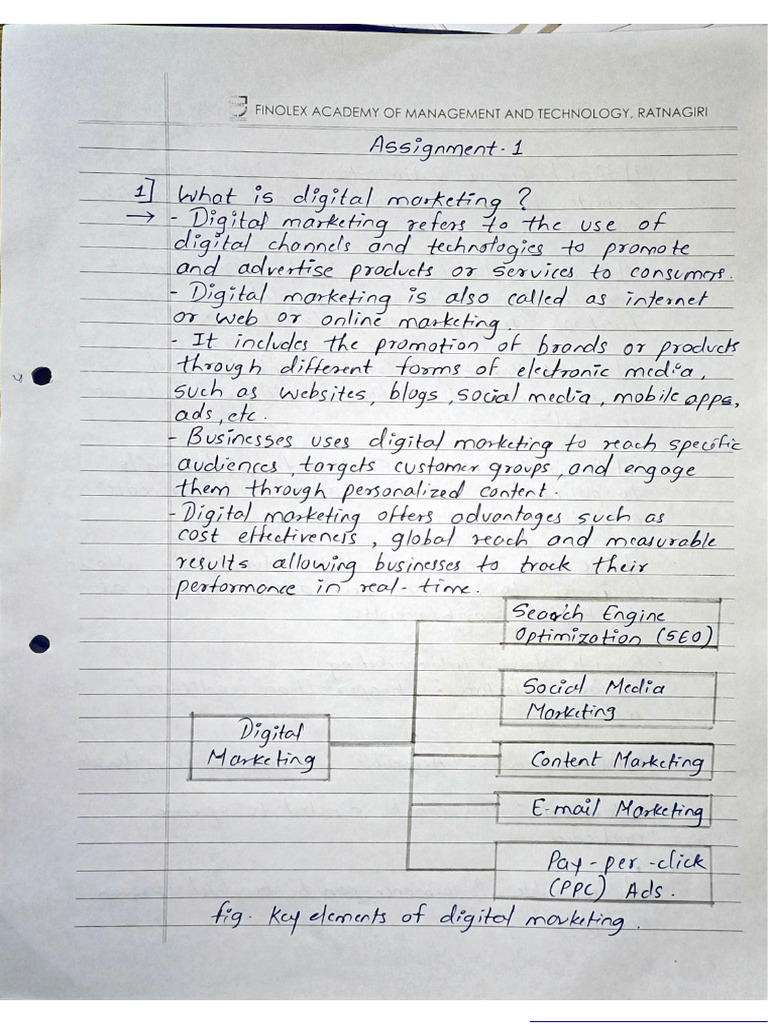 FINOLEX ACADEMY OF MANAGEMENT AND TECHNOLOGY, RATNAGIRI
Assignment-1
1] What is digital marketing ?
→ - Digital marketing refers to the use of
digital channels and technologies to promote
and advertise products or services to consumers.
- Digital marketing is also called as internet
or web or online marketing.
- It includes the promotion of brands or products
through different forms of electronic media,
such as websites, blogs, social media, mobile apps,
ads, etc.
- Businesses uses digital marketing to reach specific
audiences, targets customer groups, and engage
them through personalized content.
- Digital marketing offers advantages such as
cost effectiveness, global reach and measurable
results allowing businesses to track their
performance in real-time.
Search Engine
Optimization (SEO)
Social Media
Marketing
Digital
Marketing
Content Marketing
E-mail Marketing
Pay-per-click
(PPC) Ads.
fig. Key elements of digital marketing.